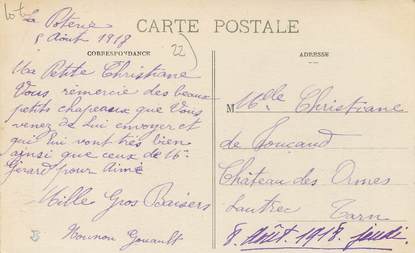 La Poterie
8 Août 1918
22
CARTE POSTALE
CORRESPONDANCE
ADRESSE
Ma Petite Christiane
Vous remercie des beaux
petits chapeaux que Vous
venez de lui envoyer et
qui lui vont très bien
ainsi que ceux de
Gérard pour Aimé
Mille Gros Baisers
Nounou Gouault
Mlle Christiane
de Foucaud
Château des Ormes
Lautrec Tarn
8. août. 1918. jeudi.